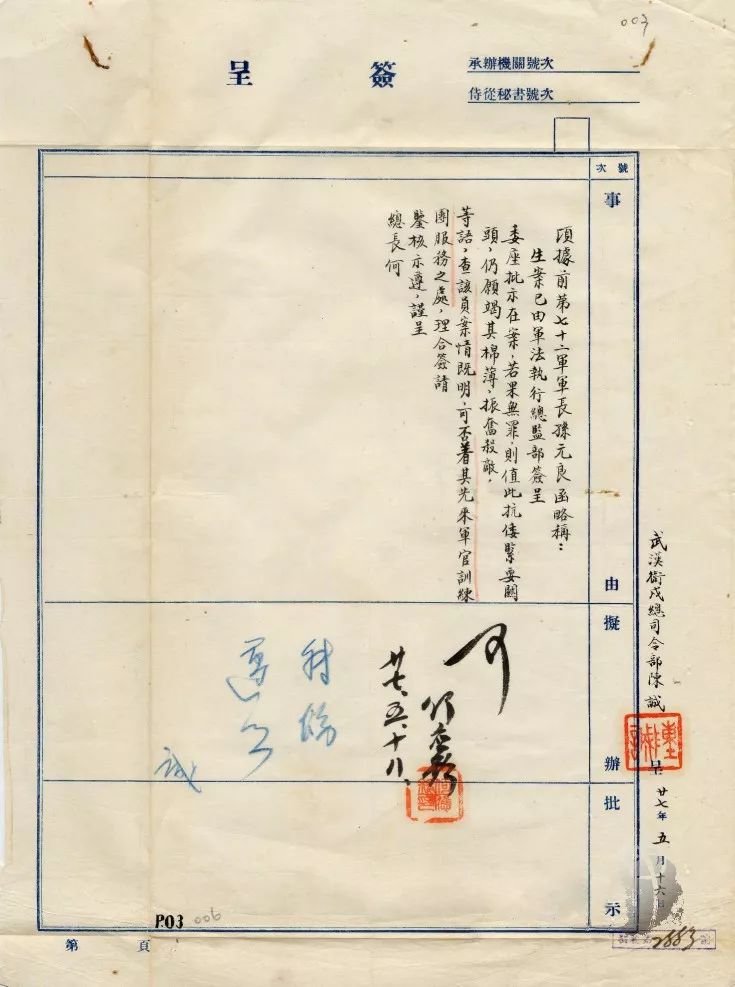 003
簽呈
承辦機關號次
侍從秘書號次
號次
事由
擬辦
批示
頃據前第七十二軍軍長孫元良函略稱：
生案已由軍法執行總監部簽呈
委座批示在案，若果無罪，則值此抗倭緊要關
頭，仍願竭其棉薄，振奮殺敵，
等語，查該員案情既明，可否着其先來軍官訓練
團服務之處，理合簽請
鑒核示遵，謹呈
總長何
武漢衛戍總司令部陳誠
呈
廿七年五月十六日
可
何應欽
廿七、五、十八、
誠
P.03
006
第 頁
2883